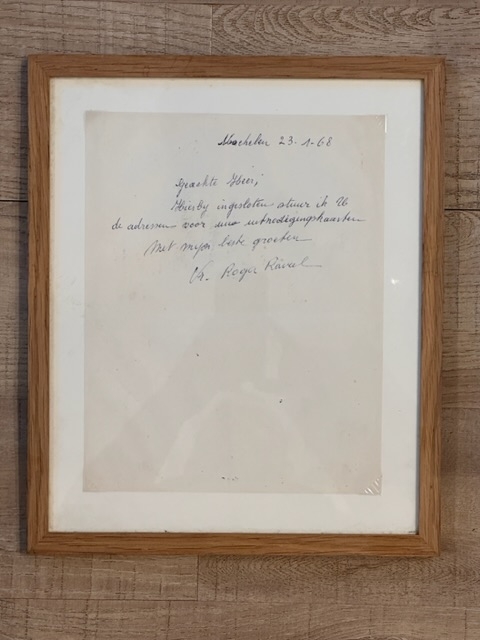 Machelen 23-1-68
Geachte Heer,
Hierby ingesloten stuur ik U
de adressen voor uw uitnodigingskaarten
Met mijn beste groeten
Roger Raveel